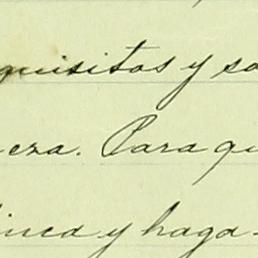 quisitos y so
eza. Para qu
inca y haga